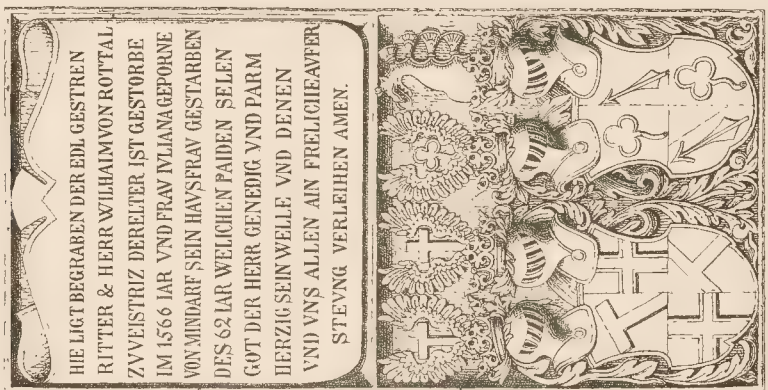 HE LIGT BEGRABEN DER EDL GESTREN
RITTER & HERR WILHAIM VON ROTTAL
ZVVEISTRIZ DERELTER IST GESTORBE
IM 1566 IAR VND FRAV IVLIANA GEPORNE
VON MINDARF SEIN HAVSFRAV GESTARBEN
DES 62 IAR WELICHEN PAIDEN SELEN
GOT DER HERR GENEDIG VND PARM
HERZIG SEIN WELLE VND DENEN
VND VNS ALLEN AIN FRELICHE AVFER
STEVNG VERLEIHEN AMEN.